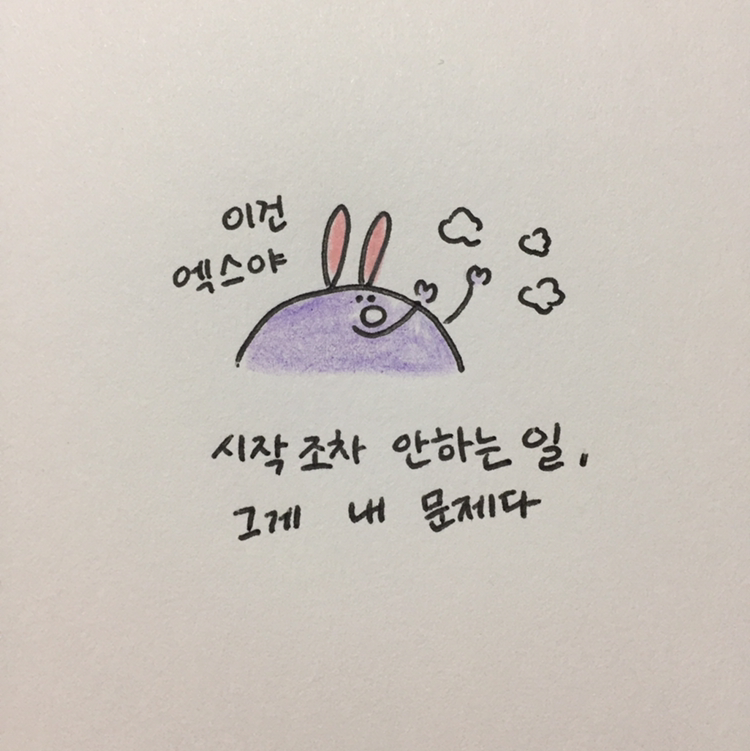 이건
엑스야
시작조차 안하는 일,
그게 내 문제다